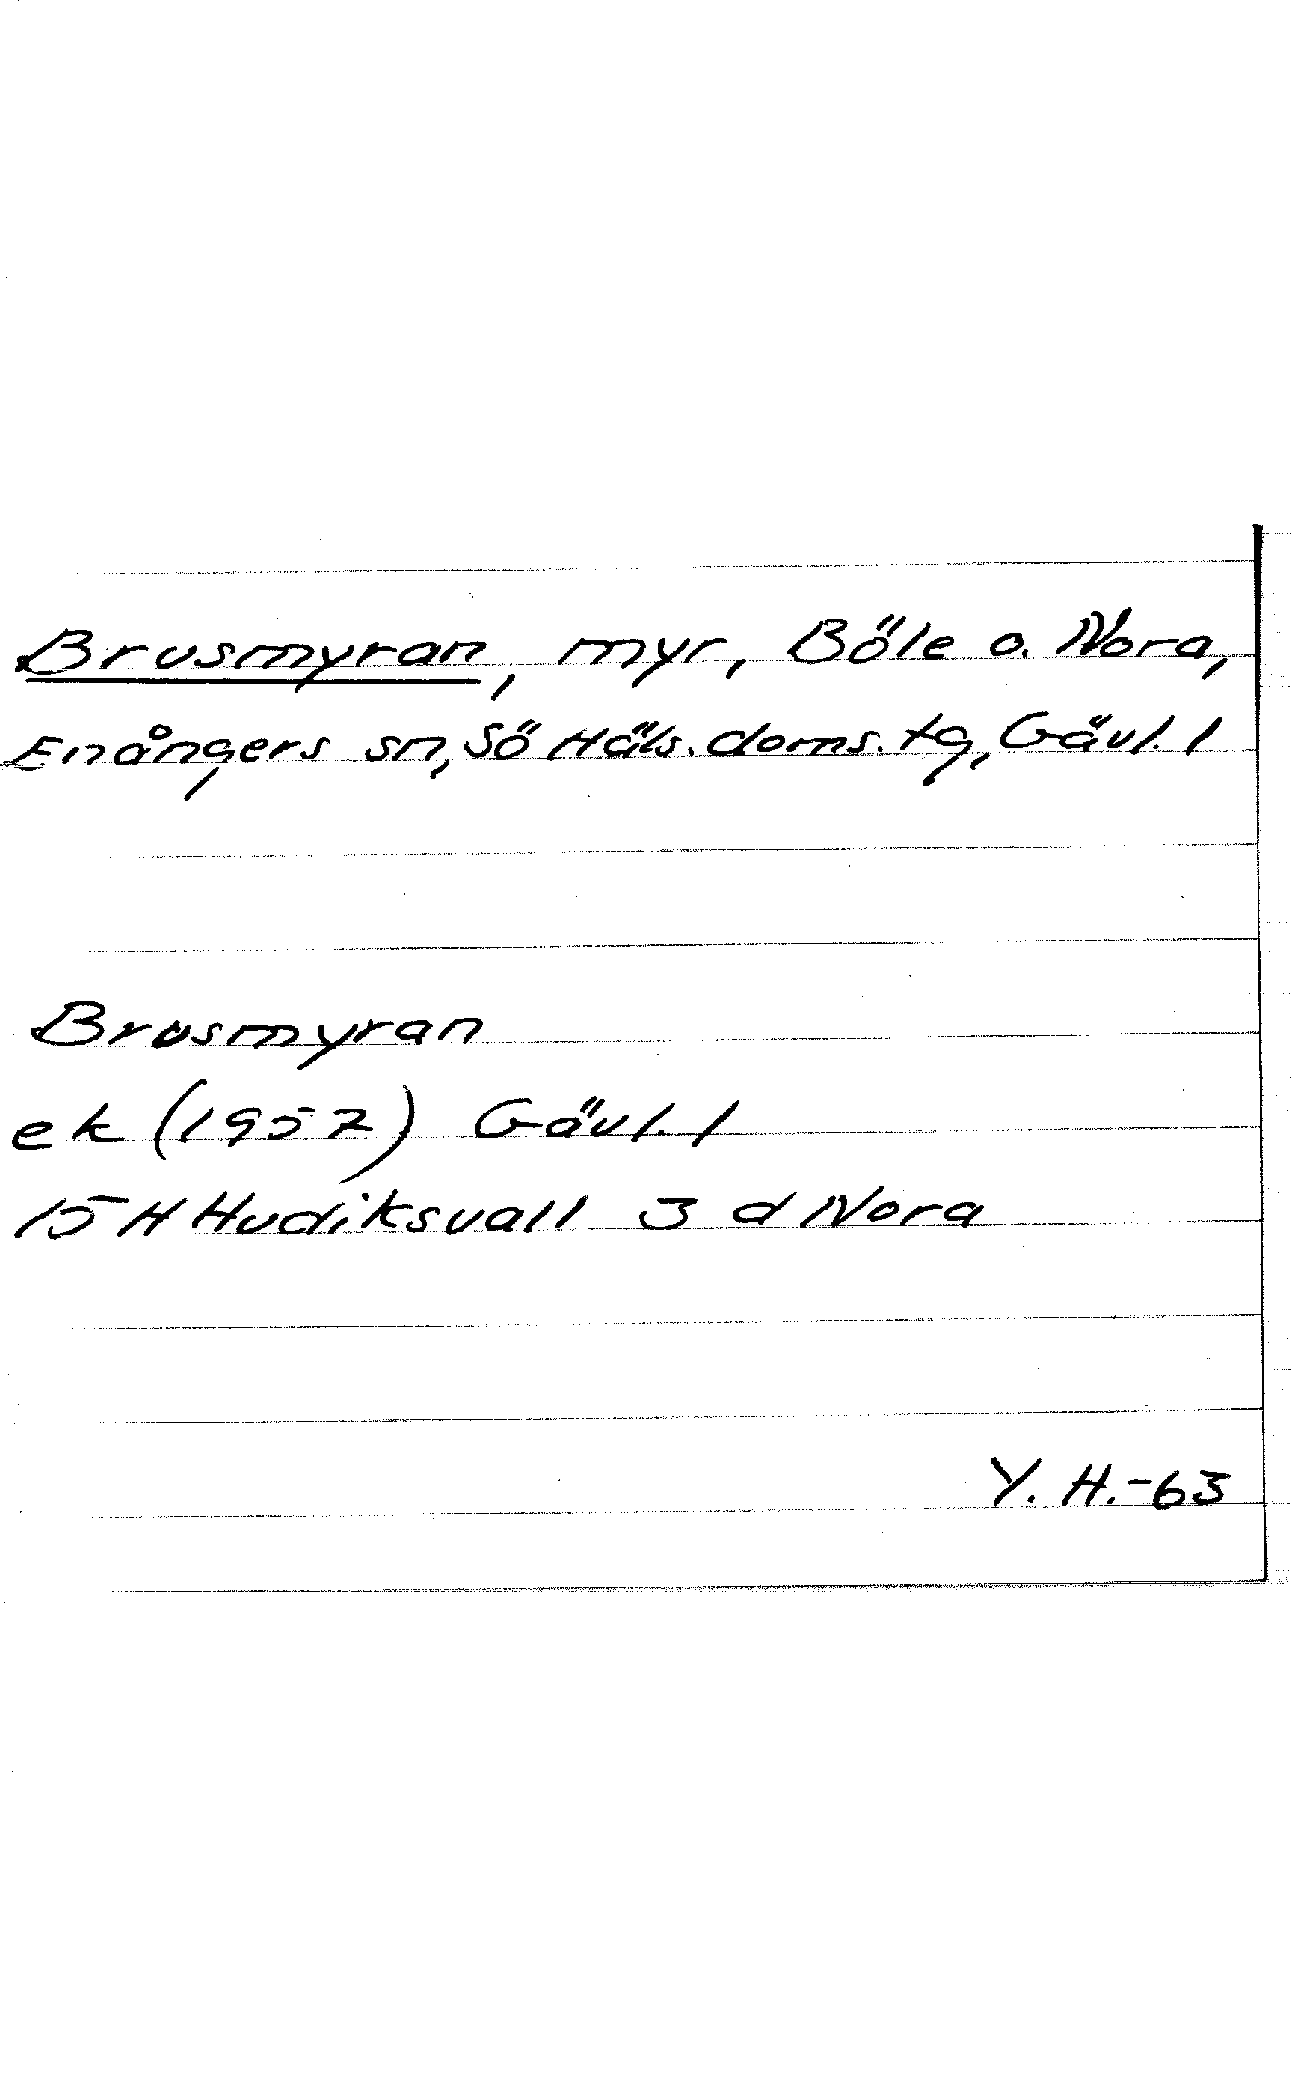 Brusmyran, myr, Böle o. Nora,
Enångers sn, Sö Häls. doms. tg, Gävl. l
Brusmyran
ek (1957) Gävl. l
15 H Hudiksvall 3 d Nora
Y. H.-63